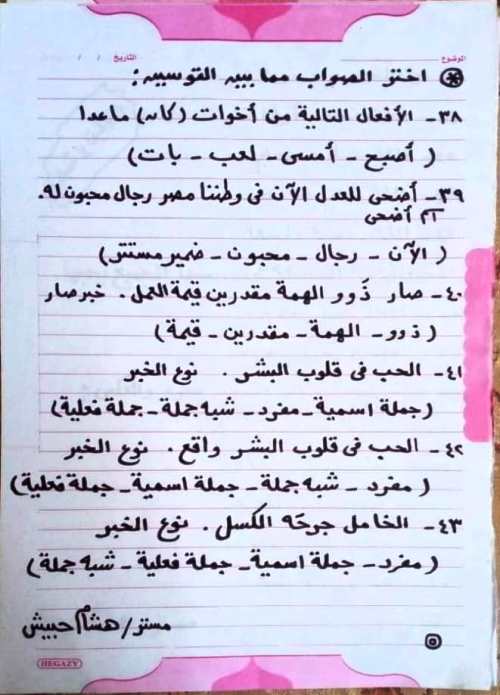 الموضوع
التاريخ / /
* اختر الصواب مما بين القوسين :
٣٨- الأفعال التالية من أخوات (كان) ماعدا
( أصبح - أمسى - لعب - بات)
٣٩- أضحى للعدل الآن فى وطننا مصر رجال محبون له.
اسم أضحى
( الآن - رجال - محبون - ضمير مستتر)
٤٠- صار ذَوو الهمة مقدرين قيمة العمل . خبر صار
( ذوو - الهمة - مقدرين - قيمة)
٤١- الحب فى قلوب البشر . نوع الخبر
(جملة اسمية - مفرد - شبه جملة - جملة فعلية)
٤٢- الحب فى قلوب البشر واقع . نوع الخبر
( مفرد - شبه جملة - جملة اسمية - جملة فعلية)
٤٣- الخامل جرحَه الكسل . نوع الخبر
( مفرد - جملة اسمية - جملة فعلية - شبه جملة)
مستر/ هشام حبيش
٥
HEGAZY